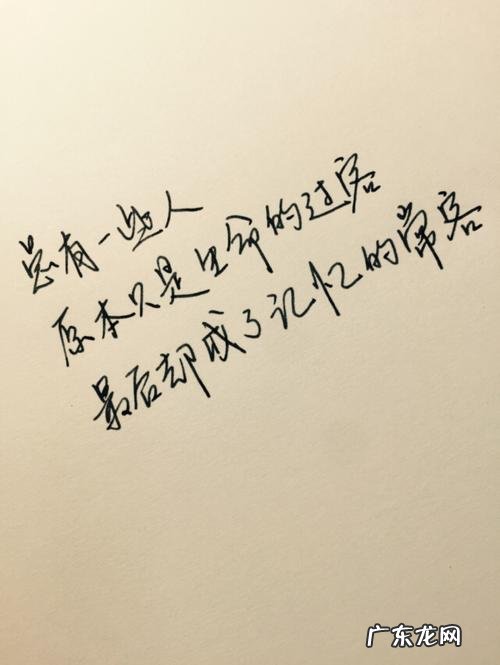 总有一些人
原本只是生命的过客
最后却成了记忆的常客
广东龙网